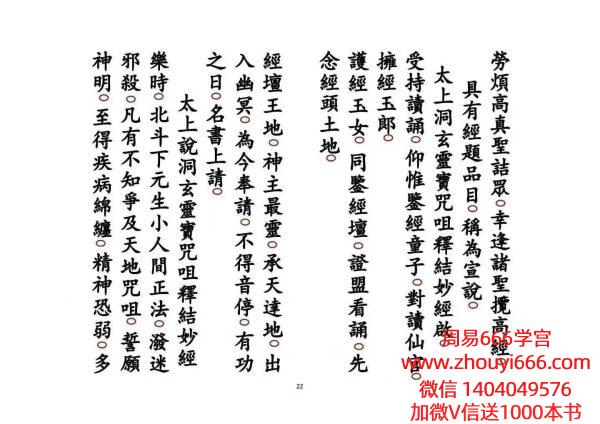 勞煩高真聖詰眾○幸逢諸聖攬高經○
具有經題品目○稱為宣說○
太上洞玄靈寶咒咀釋結妙經啟○
受持讀誦○仰惟鑒經童子○對讀仙官○
擁經玉郎○
護經玉女○同鑒經壇○證盟看誦○先
念經頭土地○
經壇王地○神主最靈○承天達地○出
入幽冥○為今奉請○不得音停○有功
之日○名書上請○
太上說洞玄靈寶咒咀釋結妙經
樂時○北斗下元生小人間正法○潑迷
邪殺○凡有不知爭及天地咒咀○誓願
神明○至得疾病綿纏○精神恐弱○多
22
周易666学宫
www.zhouyi666.com
微信 1404049576
加微V信送1000本书